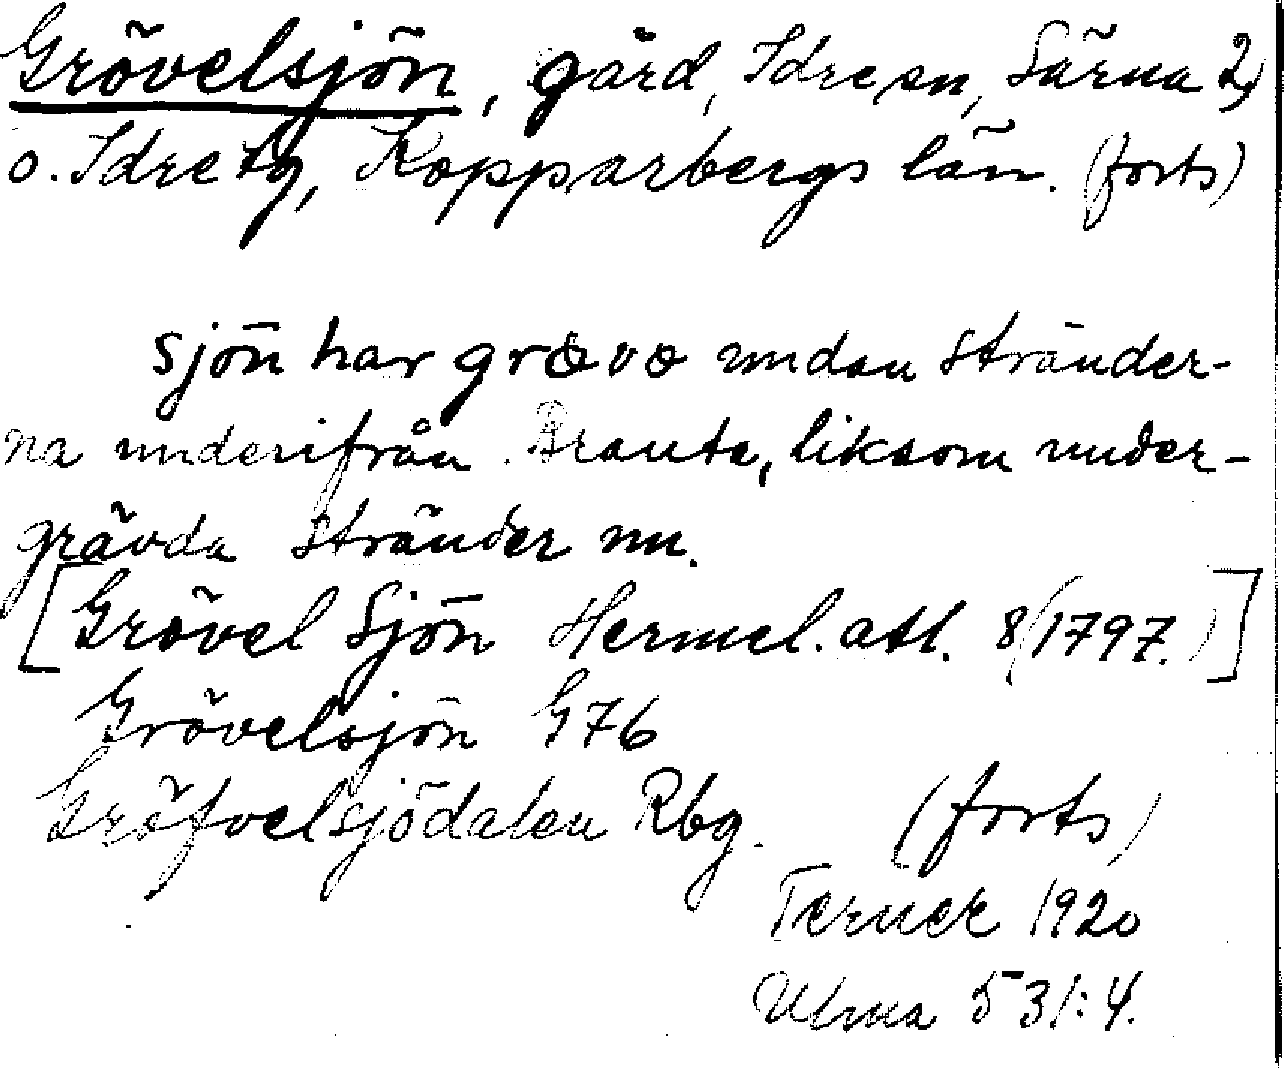 Grövelsjön, gård, Idre sn, Särna 2)
o. Idre tg, Kopparbergs län. (forts)
Sjön har grävo undan stränder-
na underifrån. Branta, liksom under-
grävda stränder nu.
[Grövel Sjön Hermel. atl. 8 (1797.)]
Grövelsjön G 76
Gröfvelsjödalen Rbg. (forts)
Terner 1920
Ulma 531:4.